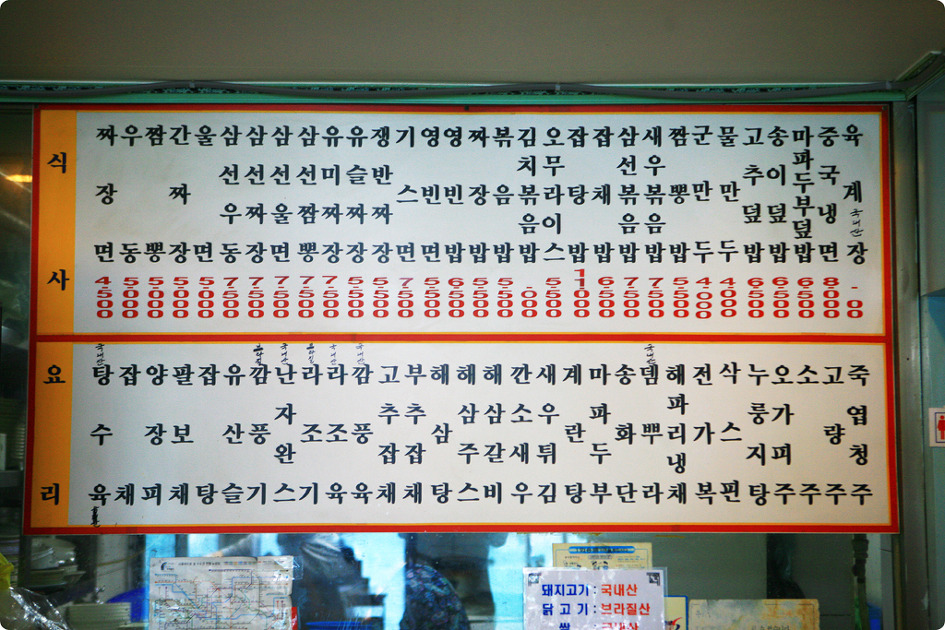 식사
짜장면 4500
우동 5000
짬뽕 5000
간짜장 5500
울면 5000
삼선우동 7500
삼선짜장 7500
삼선울면 7500
삼선짬뽕 7500
유미짜장 7500
유슬짜장 5500
쟁반짜장 5500
기스면
영빈면
영빈밥 6500
짜장밥 5500
볶음밥 5500
김치볶음밥
오무라이스 5500
잡탕밥 11000
잡채밥 6500
삼선볶음밥 7500
새우볶음밥 7500
짬뽕밥 5500
군만두 4000
물만두 4000
고추덮밥 6500
송이덮밥 6500
마파두부덮밥 6500
중국냉면 8000
육계장 국내산
요리
국내산 탕수육
잡채
양장피
팔보채
잡탕
유산슬
깜풍기
국내산 난자완스
라조기
국내산 라조육
국내산 깜풍육
고추잡채
부추잡채
해삼탕
해삼주스
해삼갈비
깐소새우
새우튀김
계란탕
마파두부
송화단
국내산 뎀뿌라
해파리냉채
전가복
삭스편
누룽지탕
오가피주
소주
고량주
죽엽청주
돼지고기 : 국내산
닭고기 : 브라질산
쌀 : 국내산